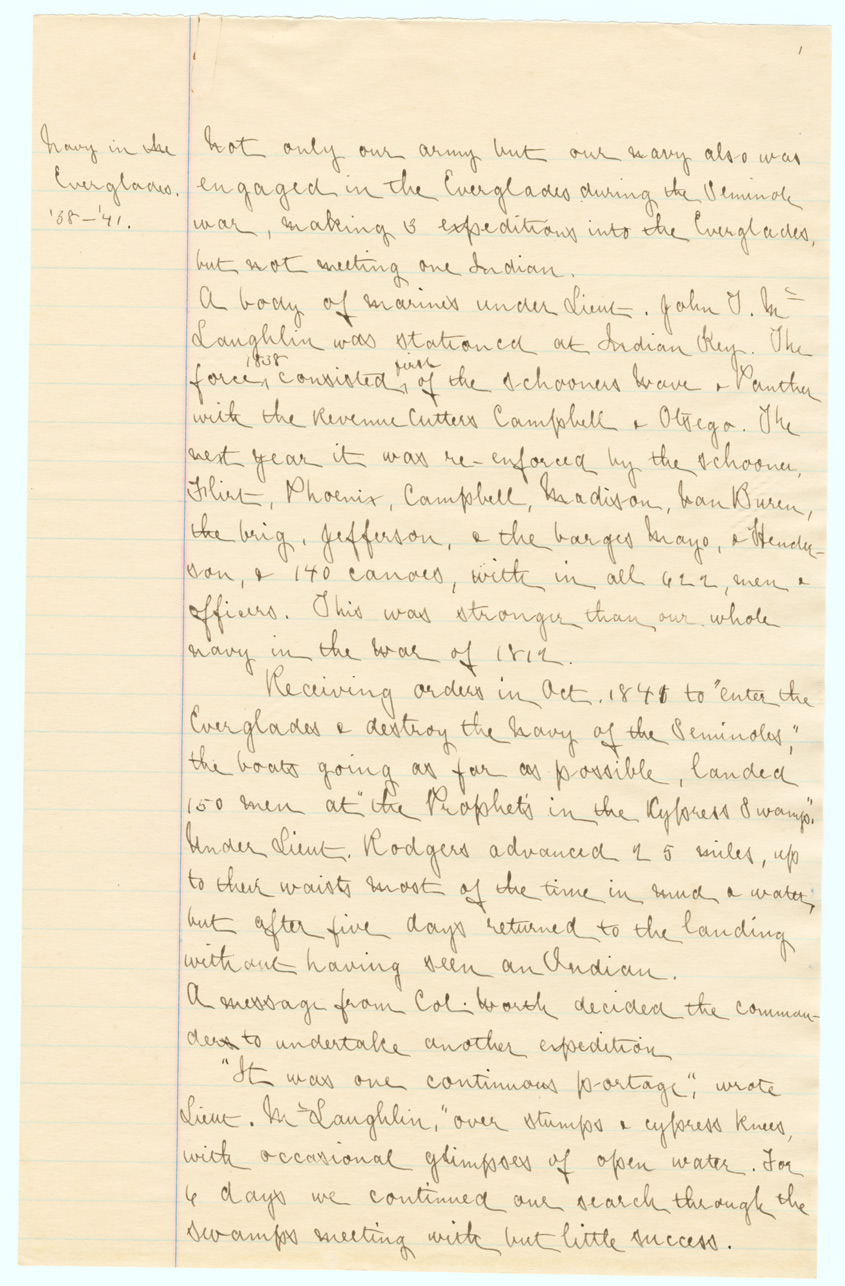 1
Navy in the
Everglades.
'38–'41.
Not only our army but our navy also was
engaged in the Everglades during the Seminole
war, making 3 expeditions into the Everglades,
but not meeting one Indian.
A body of marines under Lieut. John T. Mc
Laughlin was stationed at Indian Key. The
1838 first
force, consisted, of the schooners Wave & Panther
with the Revenue Cutters Campbell & Otsego. The
next year it was re-enforced by the schooner,
Flirt, Phoenix, Campbell, Madison, Van Buren,
the brig, Jefferson, & the barges Mayo, & Hender-
son, & 140 canoes, with in all 622, men &
officers. This was stronger than our whole
navy in the War of 1812.
Receiving orders in Oct. 1841 to "enter the
Everglades & destroy the Navy of the Seminoles,"
the boats going as far as possible, landed
150 men at "the Prophet's in the Kypress Swamp".
Under Lieut. Rodgers advanced 25 miles, up
to their waists most of the time in mud & water,
but after five days returned to the landing
without having seen an Indian.
A message from Col. Worth decided the comman-
ders to undertake another expedition
"It was one continuous portage", wrote
Lieut. Mc Laughlin, "over stumps & cypress knees,
with occasional glimpses of open water. For
6 days we continued our search through the
swamps meeting with but little success.